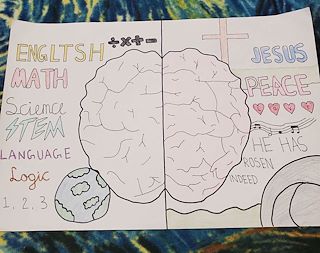 ENGLTSH ÷×+-
MATH
Science
STEM
LANGUAGE
Logic
1, 2, 3
JESUS
PEACE
HE HAS
ROSEN
INDEED